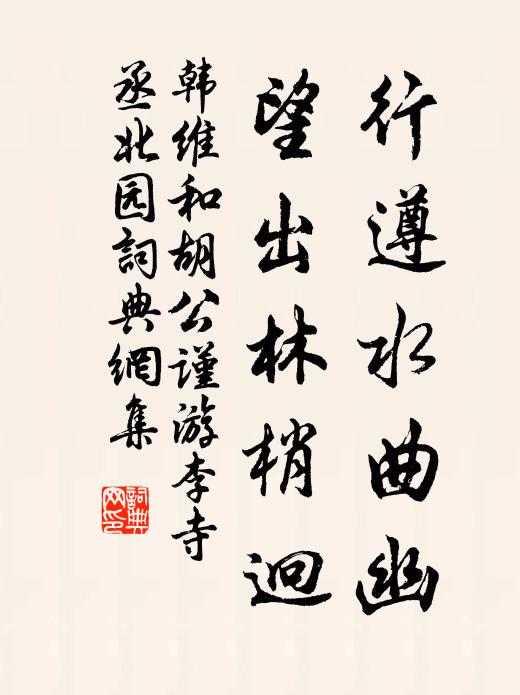 行遵水曲幽
望出林梢迥
韩维和胡公谨游李寺
丞北园詞典網集
詞典网印